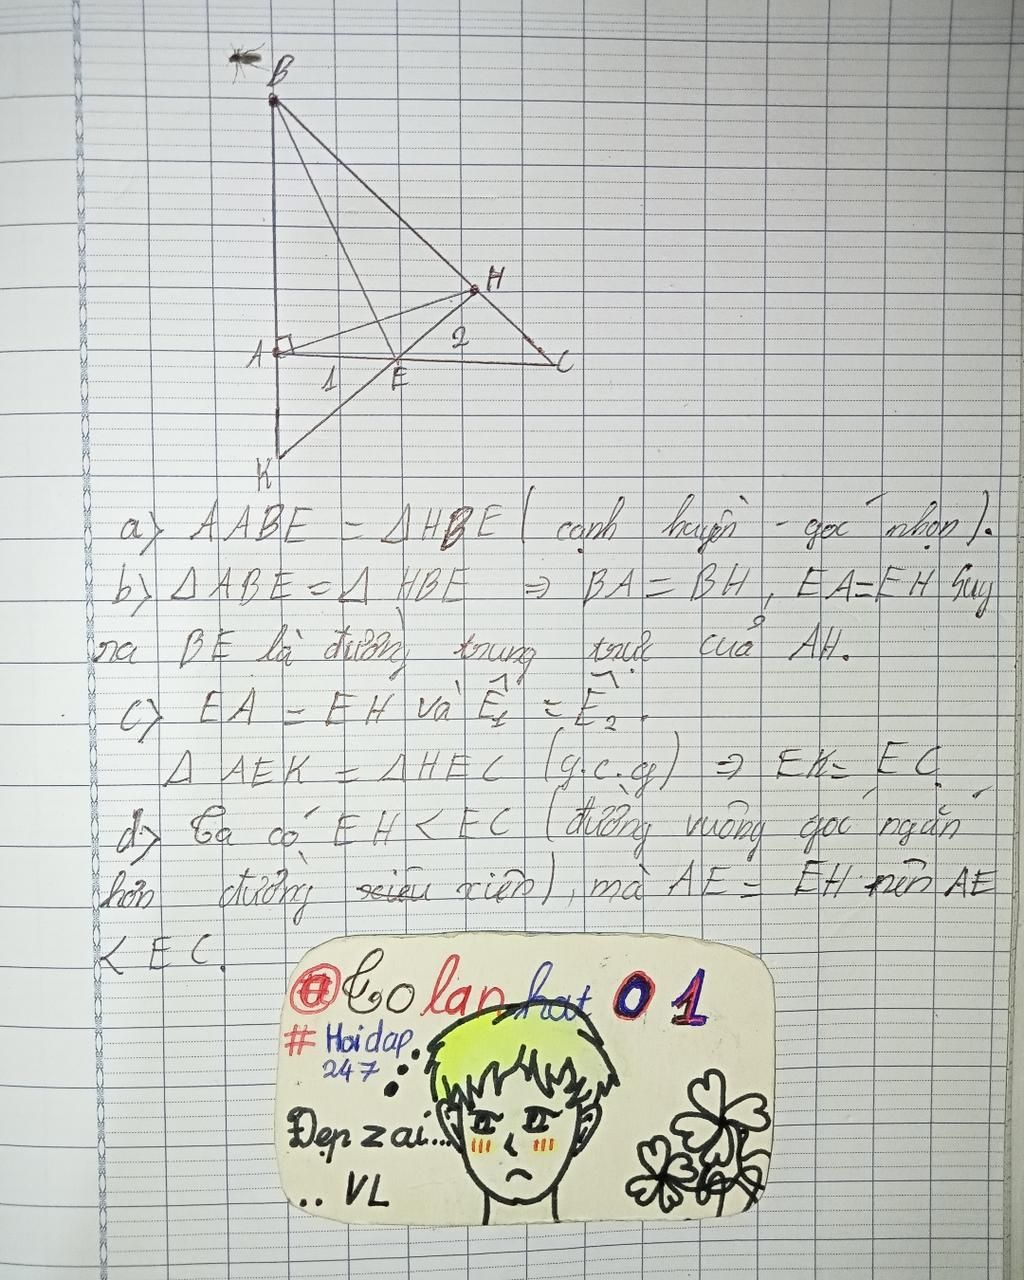 B
H
A
2
1
E
C
K
a) ΔABE = ΔHBE (cạnh huyền - góc nhọn).
b) ΔABE = Δ HBE ⇒ BA = BH, EA = EH Suy
ra BE là đường trung trực của AH.
c) EA = EH và Ê₁ = Ê₂.
Δ AEK = ΔHEC (g.c.g) ⇒ EK = EC
d) Ta có EH < EC (đường vuông góc ngắn
hơn đường xiên), mà AE = EH nên AE
< EC.
@Tolanhat01
# Hoidap
247
Đẹp zai...
.. VL